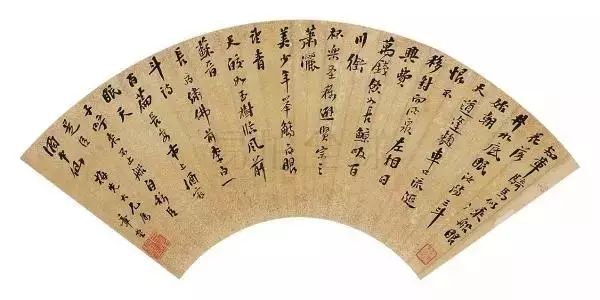 知章
騎馬似乘船眼
花落
井水底眠汝陽三斗
始朝
天道逢麴車口流涎
恨不
移封向酒泉左相日
興費
萬錢飲如長鯨吸百
川銜
杯樂聖稱避賢宗之
瀟灑
美少年舉觴白眼
望青
天皎如玉樹臨風前
蘇晉
長齋繡佛前李白一
斗詩
百篇長安市上酒家
眠天
子呼來不上船自稱臣
是
酒中仙
大兄屬